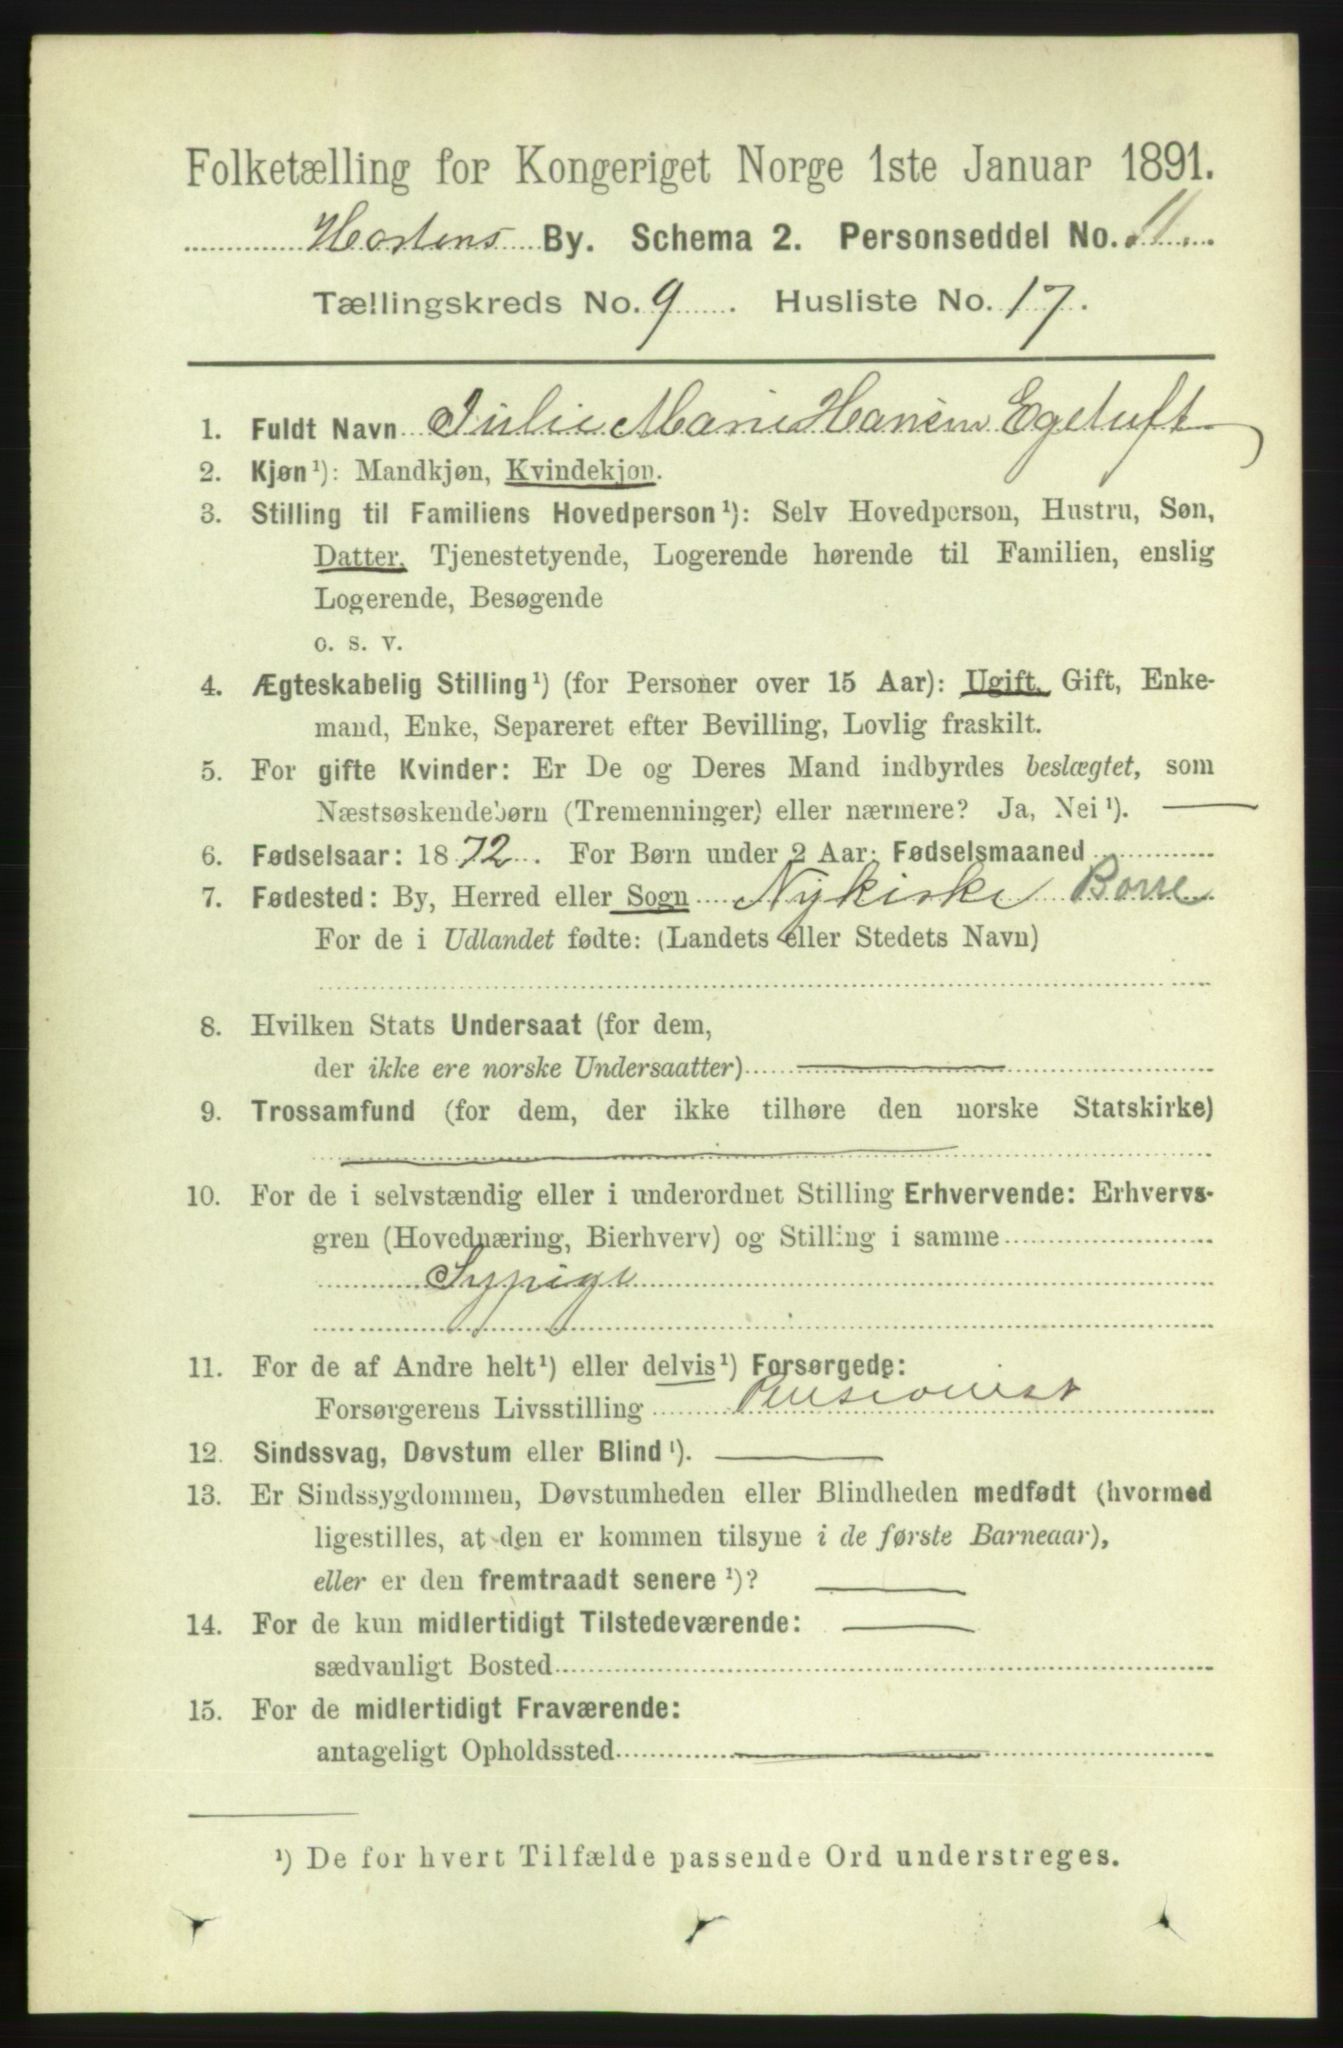 Folketælling for Kongeriget Norge 1ste Januar 1891.
Hortens By. Schema 2. Personseddel No. 11.
Tællingskreds No. 9. Husliste No. 17.
1. Fuldt Navn Julie Marie Hansen Egetuft
2. Kjøn¹): Mandkjøn, Kvindekjøn.
3. Stilling til Familiens Hovedperson¹): Selv Hovedperson, Hustru, Søn,
Datter, Tjenestetyende, Logerende hørende til Familien, enslig
Logerende, Besøgende
o. s. v.
4. Ægteskabelig Stilling¹) (for Personer over 15 Aar): Ugift, Gift, Enke-
mand, Enke, Separeret efter Bevilling, Lovlig fraskilt.
5. For gifte Kvinder: Er De og Deres Mand indbyrdes beslægtet, som
Næstsøskendebørn (Tremenninger) eller nærmere? Ja, Nei¹).
6. Fødselsaar: 1872. For Børn under 2 Aar: Fødselsmaaned
7. Fødested: By, Herred eller Sogn Nykirke Borre
For de i Udlandet fødte: (Landets eller Stedets Navn)
8. Hvilken Stats Undersaat (for dem,
der ikke ere norske Undersaatter)
9. Trossamfund (for dem, der ikke tilhøre den norske Statskirke)
10. For de i selvstændig eller i underordnet Stilling Erhvervende: Erhvervs-
gren (Hovednæring, Bierhverv) og Stilling i samme
Sypige
11. For de af Andre helt¹) eller delvis¹) Forsørgede:
Forsørgerens Livsstilling Pensionist
12. Sindssvag, Døvstum eller Blind¹).
13. Er Sindssygdommen, Døvstumheden eller Blindheden medfødt (hvormed
ligestilles, at den er kommen tilsyne i de første Barneaar),
eller er den fremtraadt senere¹)?
14. For de kun midlertidigt Tilstedeværende:
sædvanligt Bosted
15. For de midlertidigt Fraværende:
antageligt Opholdssted
¹) De for hvert Tilfælde passende Ord understreges.